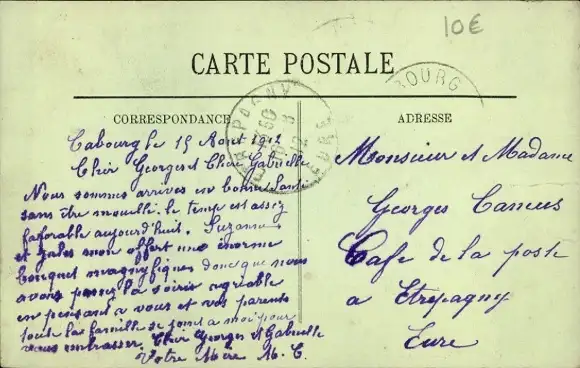 10€
CARTE POSTALE
CORRESPONDANCE
ADRESSE
BOURG
Cabourg le 15 Aout 1912
Cher Georges et Chère Gabrielle
Nous sommes arrives en bonne Santé
sans être mouillé. le temps est assez
faforable aujourd'huit. Suzanne
et mon offert une énorme
bouquet magnyfiques donc que nous
avons passez la soirie agréable
en pensant a vous et vos parents
toute la famille se joint a moi pour
vous embrasser. Cher Georges et Gabrielle
Votre Mère M. C.
Monsieur et Madame
Georges
Cafe de la poste
a Etrepagny
Eure